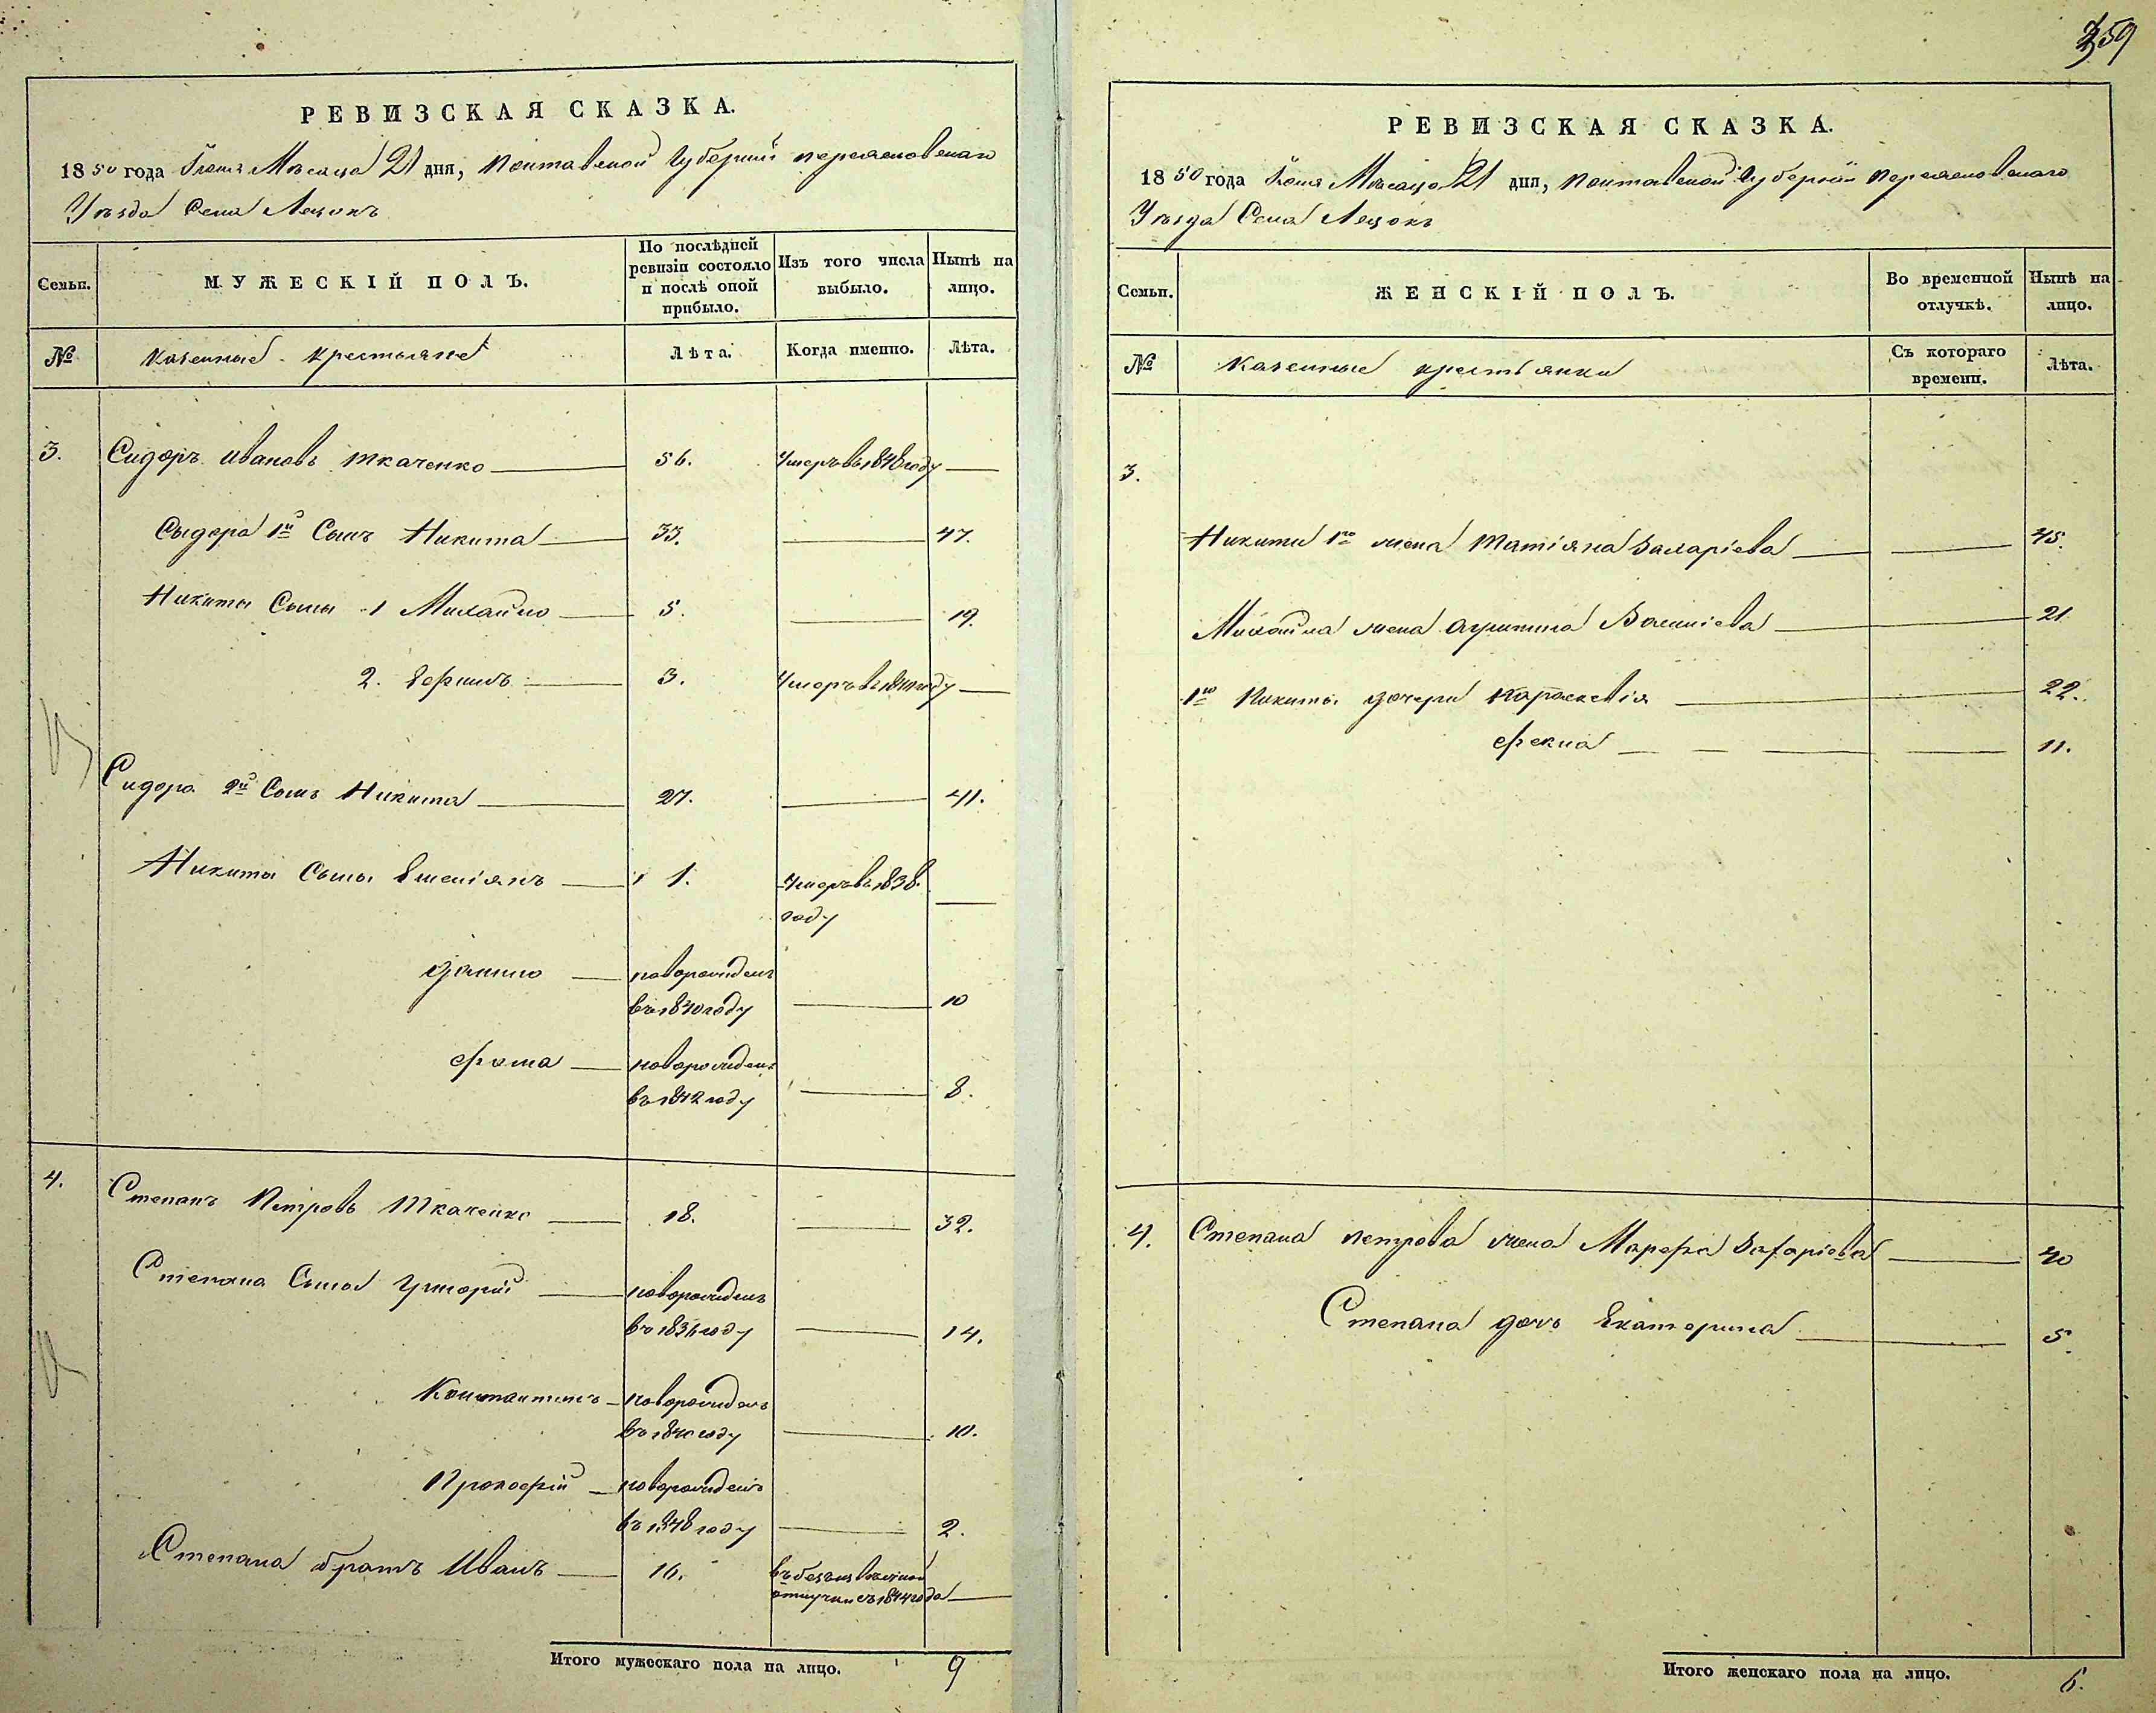 359
РЕВИЗСКАЯ СКАЗКА.
1850 года Іюня Месяца 21 дня, Полтавской Губерніи Переясловскаго
Уѣзда Села Лецокъ
Семьи.
МУЖЕСКІЙ ПОЛЪ.
По послѣдней
ревизіи состояло
и послѣ оной
прибыло.
Изъ того числа
выбыло.
Нынѣ на
лицо.
№
Казенные крестьяне
Лѣта.
Когда именно.
Лѣта.
3. Сидоръ Ивановъ Ткаченко 56. Умеръ въ 1848 году
Сыдора 1й Сынъ Никита 33. 47.
Никиты Сыны 1 Михайло 5. 19.
2. 3. Умеръ въ году
Сидора 2й Сынъ Никита 27. 41.
Никиты Сыны Емеліянъ 1. Умеръ въ 1838.
году
Данило новорожденъ
въ 1840 году 10
Фома новорожденъ
въ 1842 году 8.
4. Степанъ Петровъ Ткаченко 18. 32.
Степана Сыны Григорій новорожденъ
въ 1836 году 14.
Константинъ новорожденъ
въ 1840 году 10.
Прокофій новорожденъ
въ 1848 году 2.
Степана братъ Иванъ 16. въ безъизвѣстной
отлучки съ 1844 года
Итого мужескаго пола на лицо. 9
РЕВИЗСКАЯ СКАЗКА.
1850 года Іюня Месяца 21 дня, Полтавской Губерніи Переясловскаго
Уѣзда Села Лецокъ
Семьи.
ЖЕНСКІЙ ПОЛЪ.
Во временной
отлучкѣ.
Нынѣ на
лицо.
№
Казенные крестьянки
Съ котораго
времени.
Лѣта.
3.
Никиты 1го жена Татіяна Захаріева 45.
Михайла жена 21
1го Никиты дочери Параскевія 22.
Фекла 11.
4. Степана Петрова жена Марфа Захаріева 40
Степана дочь Екатерина 5.
Итого женскаго пола на лицо. 6.